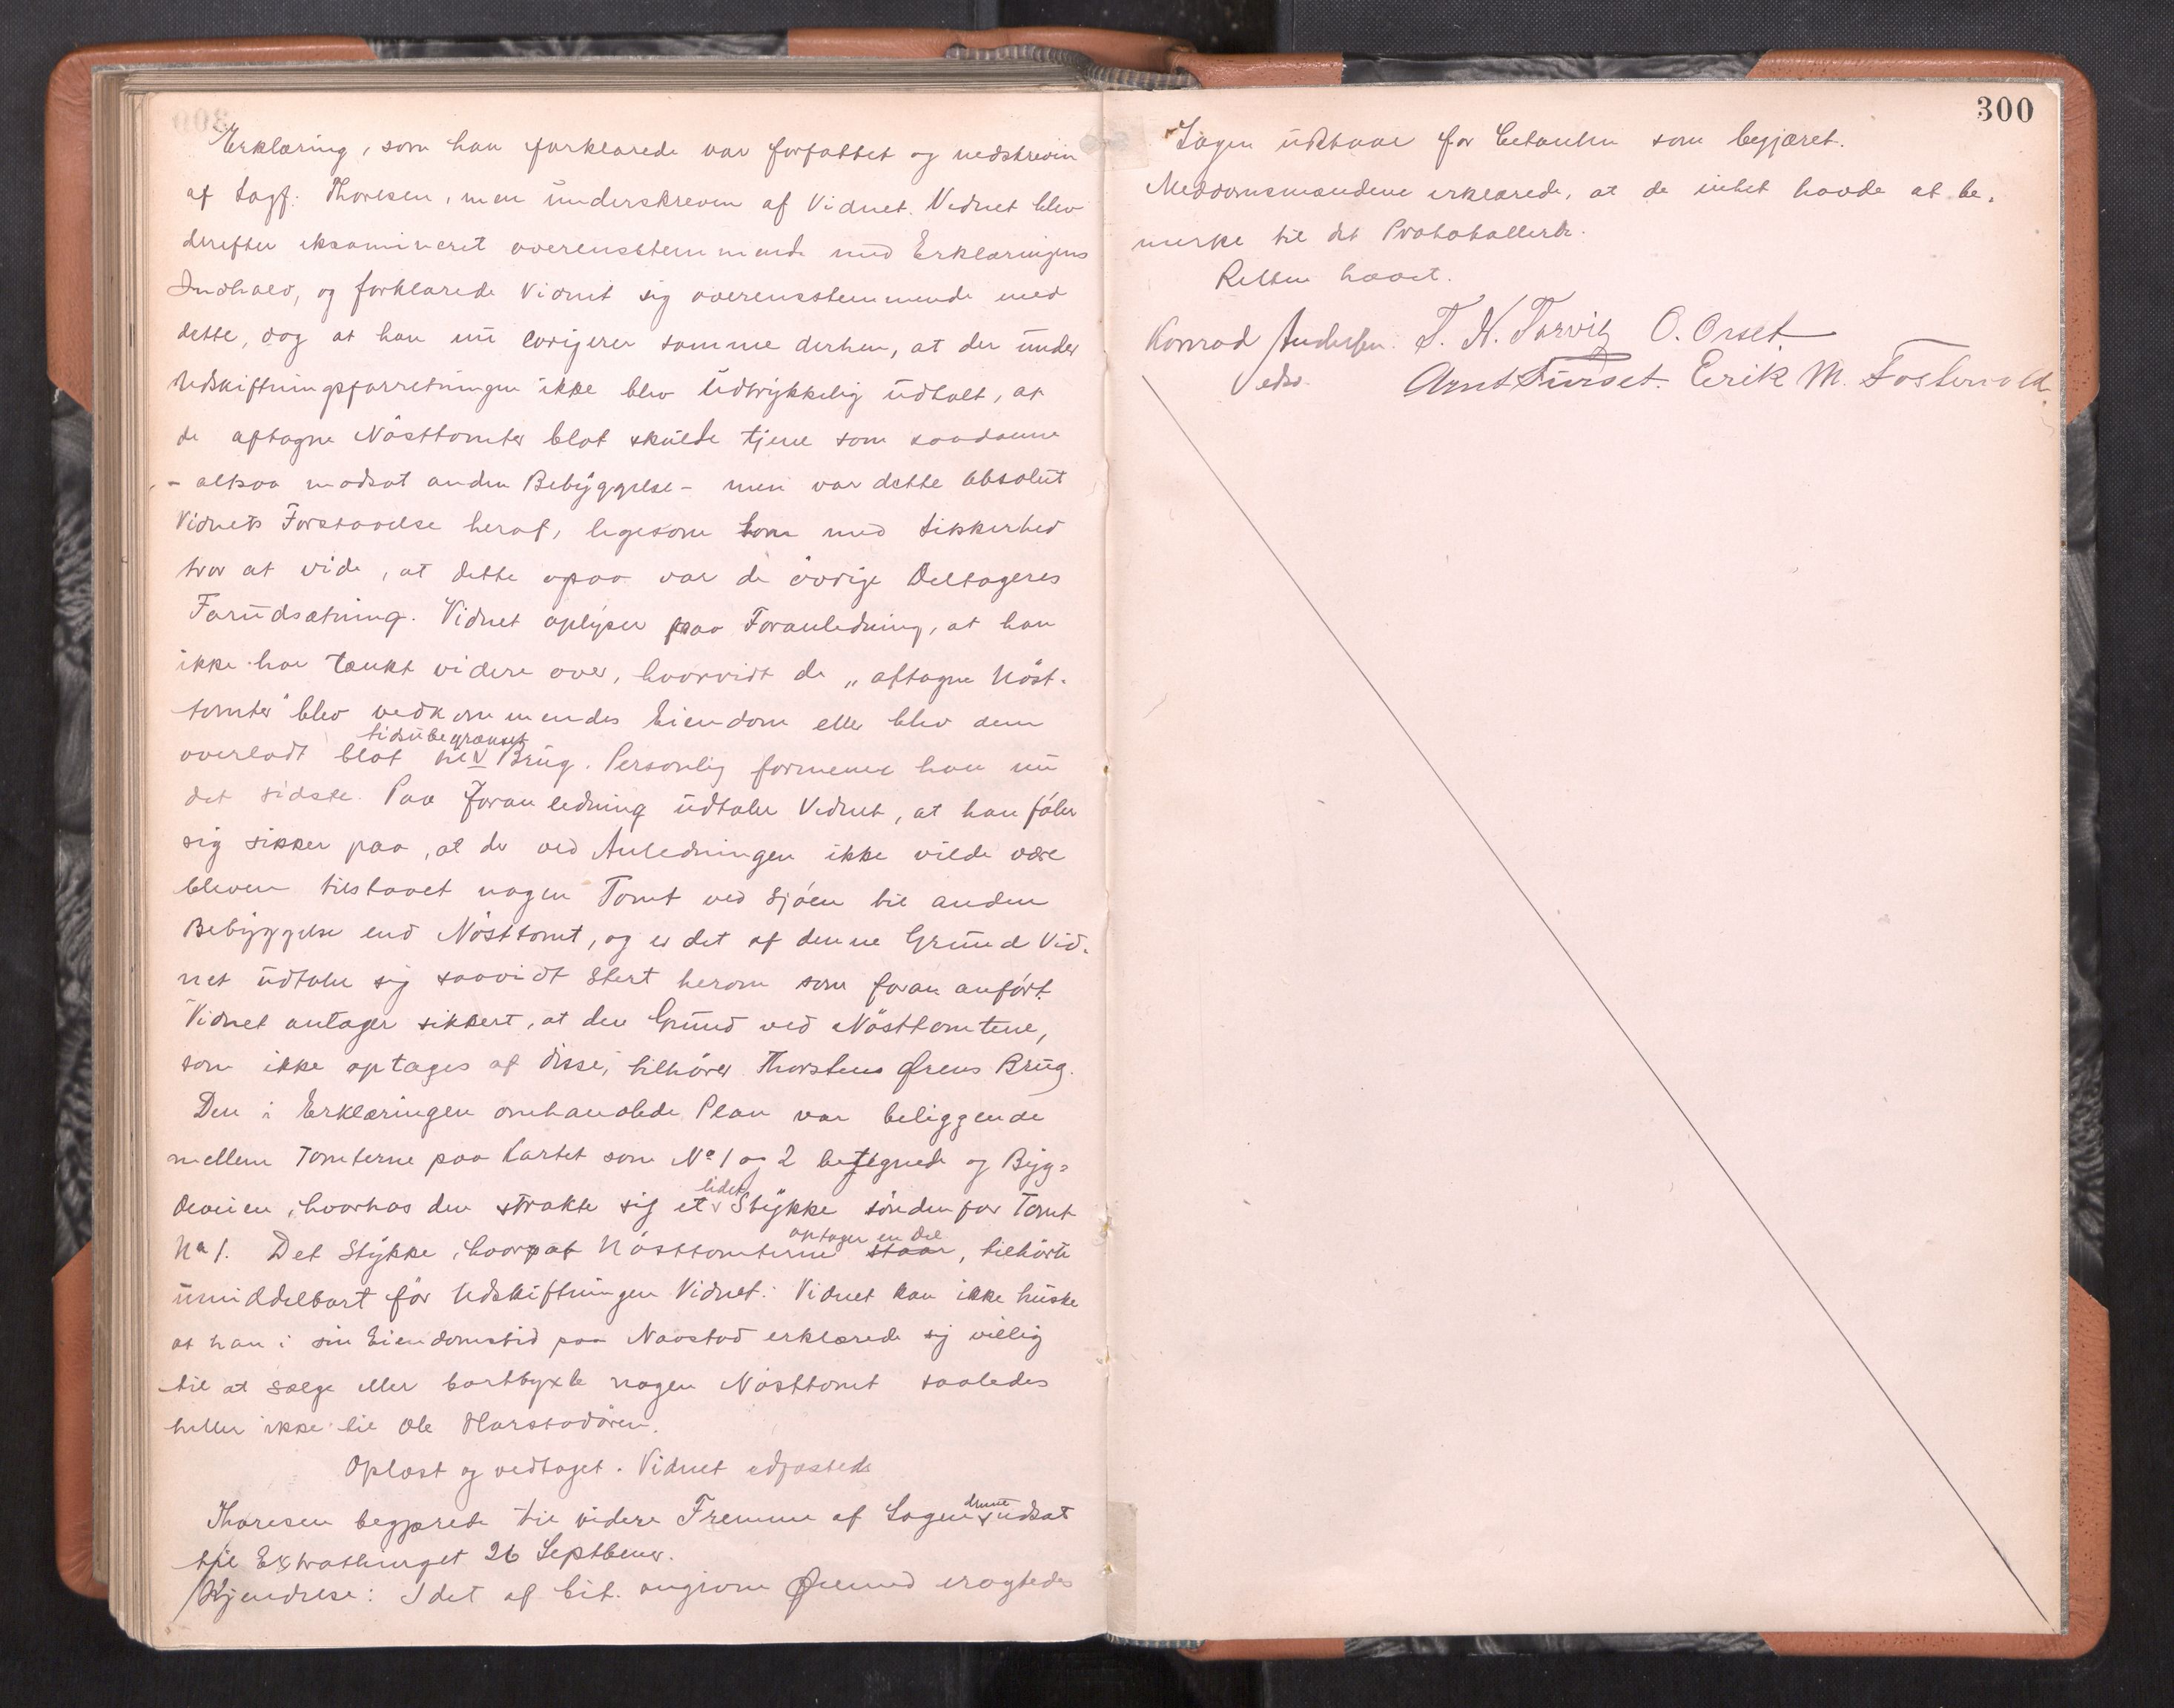 Erklæring, som han forklarede var forfattet og nedskreven
af Sagf. Thoresen, men underskreven af Vidnet. Vidnet blev
derefter eksamineret overensstemmende med Erklæringens
Indhold, og forklarede Vidnet sig overensstemmende med
dette, dog at han nu corigerer samme derhen, at der under
Udskiftningsforretningen ikke blev udtrykkelig udtalt, at
de aftagne Nösttomter blot skulde tjene som saadanne
- altsaa modsat anden Bebyggelse - men var dette absolut
Vidnets Forstaaelse heraf, ligesom han med Sikkerhed
tror at vide, at dette ogsaa var de övrige Deltageres
Forudsætning. Vidnet oplyser paa Foranledning, at han
ikke har tænkt videre over, hvorvidt de „aftagne Nöst-
tomter" blev vedkommendes Eiendom eller blev dem
tidsubegrænset
overladt blot til v Brug. Personlig formener han nu
det sidste. Paa Foranledning udtaler Vidnet, at han föler
sig sikker paa, at der ved Anledningen ikke vilde være
bleven tilstaaet nogen Tomt ved Sjöen til anden
Bebyggelse end Nösttomt, og er det af denne Grund Vid-
net udtaler sig saavidt sterkt herom som foran anfört.
Vidnet antager sikkert, at den Grund ved Nösttomtene,
som ikke optages af disse, tilhörer Thorstens Ørens Brug.
Den i Erklæringen omhandlede Plan var beliggende
mellem Tomterne paa Kartet som No 1 og 2 betegnede og Byg-
deveien, hvorhos den strakte sig et v Stykke sönden for Tomt
lidet
No 1. Det Stykke, hvoraf Nösttomterne staar, tilhörte
optager en del
umiddelbart för Udskiftningen Vidnet. Vidnet kan ikke huske
at han i sin Eiendomstid paa Naostad erklærede sig villig
til at sælge eller bortbyxle nogen Nösttomt saaledes
heller ikke til Ole Harstadören.
Oplæst og vedtaget. Vidnet
Thoresen begjærede til videre Fremme af Sagen v udsat
denne
til Extrathinget 26 Septbener.
Kjendelse: I det af Cit. angivne Øiemed eragtedes
300
Sagen udstaar for Citanten som begjæret.
Meddomsmændene erklærede, at de intet havde at be-
merke til det Protokollerte.
Retten hævet.
Konrad Andersen. T. H. Torvig O. Orset.
Veds. Arnt Furset. Eerik M. Fostervold.